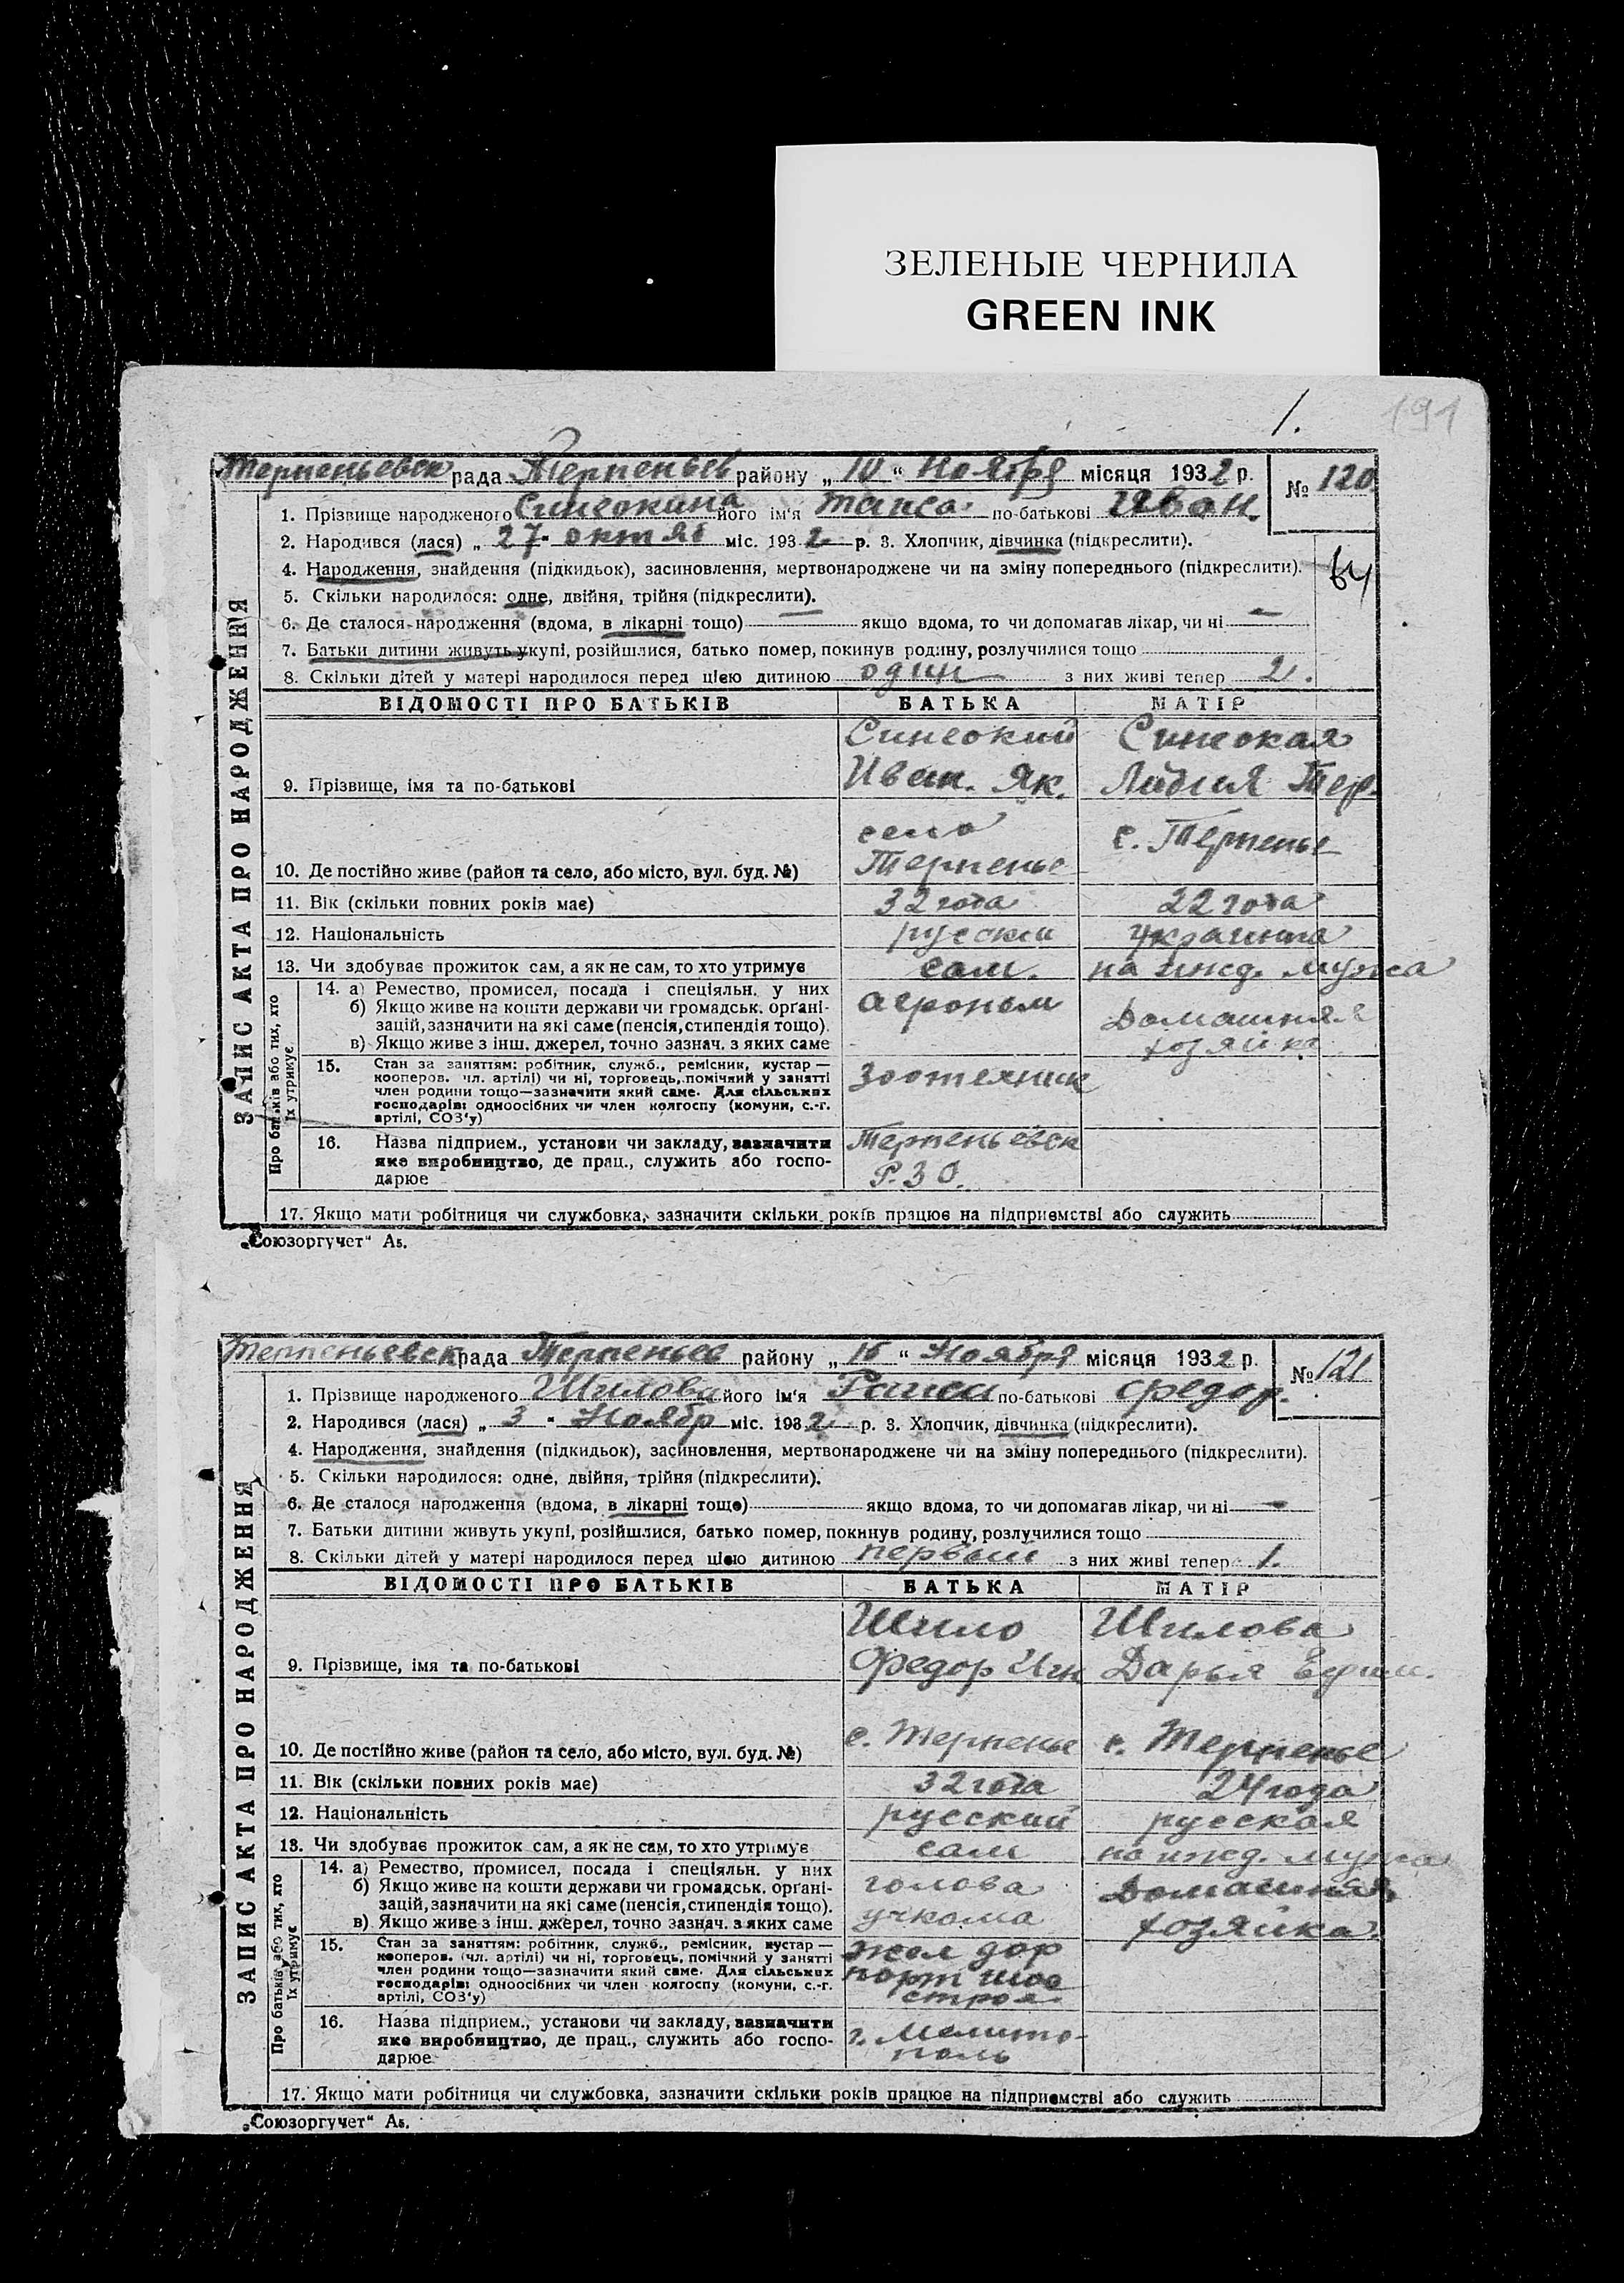 ЗЕЛЕНЫЕ ЧЕРНИЛА
GREEN INK
1.
191
Терпеньевск рада Терпеньев району „ 10 “ Ноября місяця 1932 р.
№ 120
1. Прізвище народженого Синеокина його ім'я Таиса по-батькові Иван.
2. Народився (лася) „ 27 " октяб міс. 1932 р. 3. Хлопчик, дівчинка (підкреслити).
4. Народження, знайдення (підкидьок), засиновлення, мертвонароджене чи на зміну попереднього (підкреслити).
5. Скільки народилося: одне, двійня, трійня (підкреслити).
6. Де сталося народження (вдома, в лікарні тощо) — якщо вдома, то чи допомагав лікар, чи ні —
7. Батьки дитини живуть укупі, розійшлися, батько помер, покинув родину, розлучилися тощо
8. Скільки дітей у матері народилося перед цією дитиною один з них живі тепер 2.
ВІДОМОСТІ ПРО БАТЬКІВ БАТЬКА МАТІР
Синеокий Синеокая
9. Прізвище, імя та по-батькові Иван. Як. Лидия Тер.
село с. Терпенье
10. Де постійно живе (район та село, або місто, вул. буд. №) Терпенье
11. Вік (скільки повних років має) 32 года 22 года
12. Національність русский украинка
13. Чи здобуває прожиток сам, а як не сам, то хто утримує сам. на ижд. мужа
14. а) Ремество, промисел, посада і спеціяльн. у них агроном Домашняя
б) Якщо живе на кошти держави чи громадськ. орґані-
зацій, зазначити на які саме (пенсія, стипендія тощо).
в) Якщо живе з інш. джерел, точно зазнач. з яких саме хозяйка
15. Стан за заняттям: робітник, служб., ремісник, кустар — зоотехник
кооперов. чл. артілі) чи ні, торговець, помічний у занятті
член родини тощо—зазначити який саме. Для сільських
господарів: одноосібних чи член колгоспу (комуни, с.-г.
артілі, СОЗ'у)
16. Назва підприєм., установи чи закладу, зазначити Терпеньевск
яке виробництво, де прац., служить або госпо- Р.З.О.
дарює
17. Якщо мати робітниця чи службовка, зазначити скільки років працює на підприємстві або служить
ЗАПИС АКТА ПРО НАРОДЖЕННЯ
Про батьків або тих, хто
їх утримує
„Союзоргучет“ А5.
Терпеньевск рада Терпеньев району „ 16 “ Ноября місяця 1932 р.
№ 121
1. Прізвище народженого Шилова його ім'я Раиса по-батькові Федор.
2. Народився (лася) „ 3 " Ноябр міс. 1932 р. 3. Хлопчик, дівчинка (підкреслити).
4. Народження, знайдення (підкидьок), засиновлення, мертвонароджене чи на зміну попереднього (підкреслити).
5. Скільки народилося: одне, двійня, трійня (підкреслити).
6. Де сталося народження (вдома, в лікарні тощо) — якщо вдома, то чи допомагав лікар, чи ні —
7. Батьки дитини живуть укупі, розійшлися, батько помер, покинув родину, розлучилися тощо
8. Скільки дітей у матері народилося перед цією дитиною первый з них живі тепер 1.
ВІДОМОСТІ ПРО БАТЬКІВ БАТЬКА МАТІР
Шило Шилова
9. Прізвище, імя та по-батькові Федор Игн. Дарья Ефим.
10. Де постійно живе (район та село, або місто, вул. буд. №) с. Терпенье с. Терпенье
11. Вік (скільки повних років має) 32 года 24 года
12. Національність русский русская
13. Чи здобуває прожиток сам, а як не сам, то хто утримує сам на ижд. мужа
14. а) Ремество, промисел, посада і спеціяльн. у них голова Домашняя
б) Якщо живе на кошти держави чи громадськ. орґані-
зацій, зазначити на які саме (пенсія, стипендія тощо). учкома хозяйка
в) Якщо живе з інш. джерел, точно зазнач. з яких саме
15. Стан за заняттям: робітник, служб., ремісник, кустар — жел дор
кооперов. (чл. артілі) чи ні, торговець, помічний у занятті
член родини тощо—зазначити який саме. Для сільських
господарів: одноосібних чи член колгоспу (комуни, с.-г. строя
артілі, СОЗ'у)
16. Назва підприєм., установи чи закладу, зазначити г. Мелито-
яке виробництво, де прац., служить або госпо- поль
дарює
17. Якщо мати робітниця чи службовка, зазначити скільки років працює на підприємстві або служить
ЗАПИС АКТА ПРО НАРОДЖЕННЯ
Про батьків або тих, хто
їх утримує
„Союзоргучет“ А5.